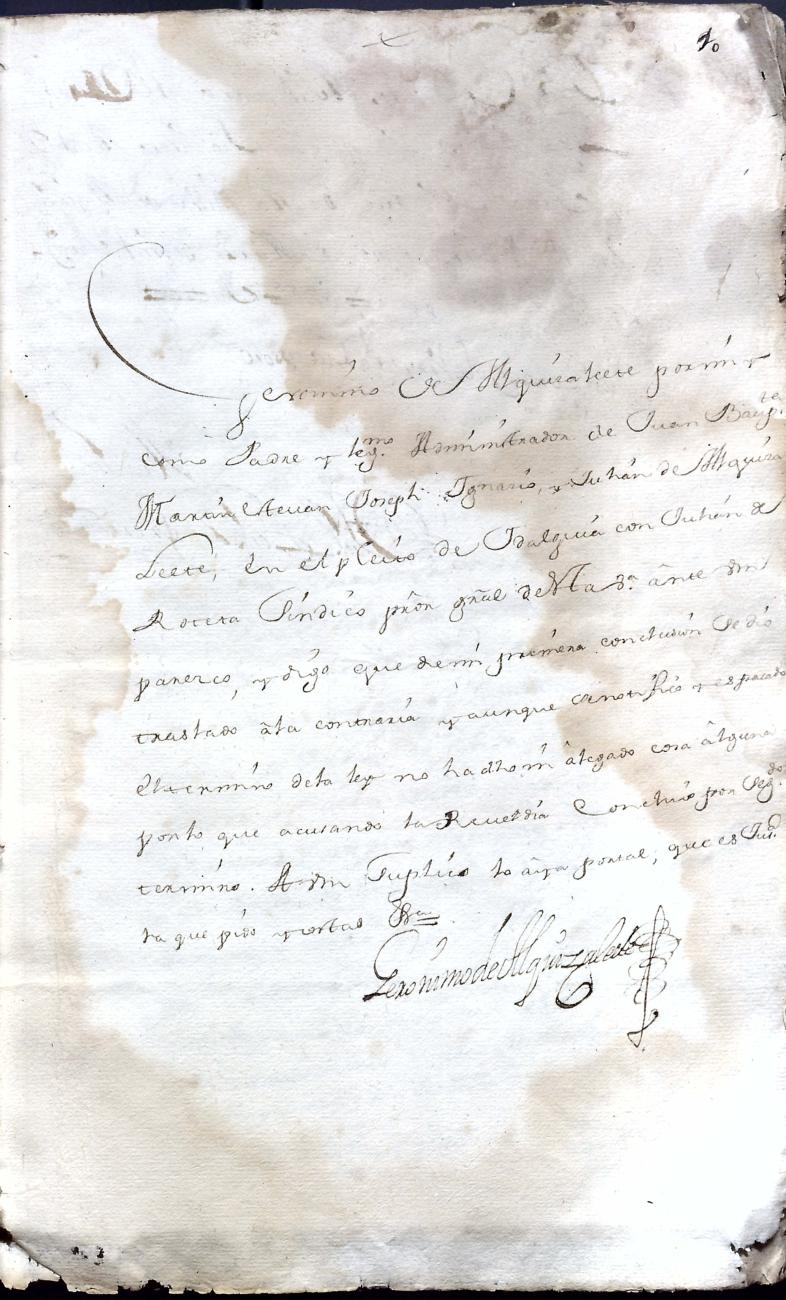 10
Geronimo de Alquizaleete por mi y
como Padre y leg.mo Administrador de Juan Baup.ta
Martin Estevan Joseph Ygnacio, y Julian de Alquiza
Leete, en el pleito de Ydalguia con Julian de
Roteta Sindico prõn gñal de Vta Va. ante Vm
parezco, y digo que de mi primera conclusion se dio
traslado a la contraria y aunque se notifico y es pasado
el termino de la ley no ha dho ni alegado cosa alguna
por lo que acusando la Reveldia Concluio por seg.do
termino. A Vm Suplico lo aya por tal, que es Jus.a
la que pido y costas &a
Geronimo de Alquizaleete